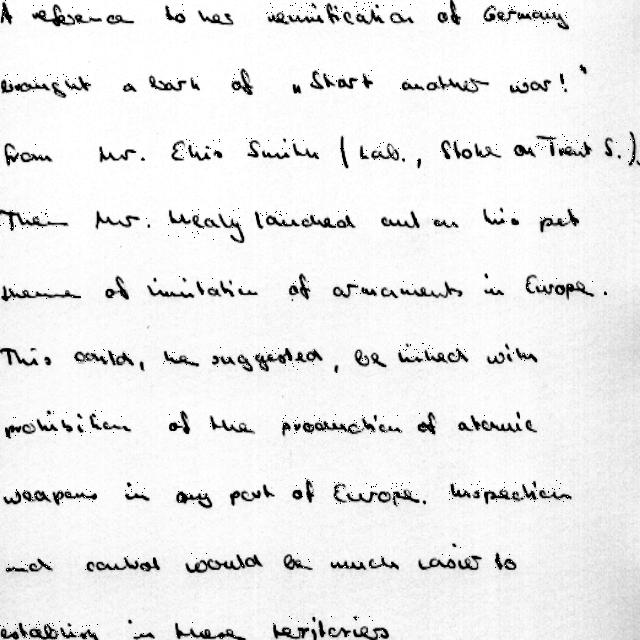 A reference to her reunification of Germany
brought a bark of "Start another war!"
from Mr. Ellis Smith (Lab., Stoke on Trent S.).
Then Mr. Healy launched out on his pet
theme of limitation of armaments in Europe.
This could, he suggested, be linked with
prohibition of the production of atomic
weapons in any part of Europe. Inspection
and control would be much easier to
establish in these territories